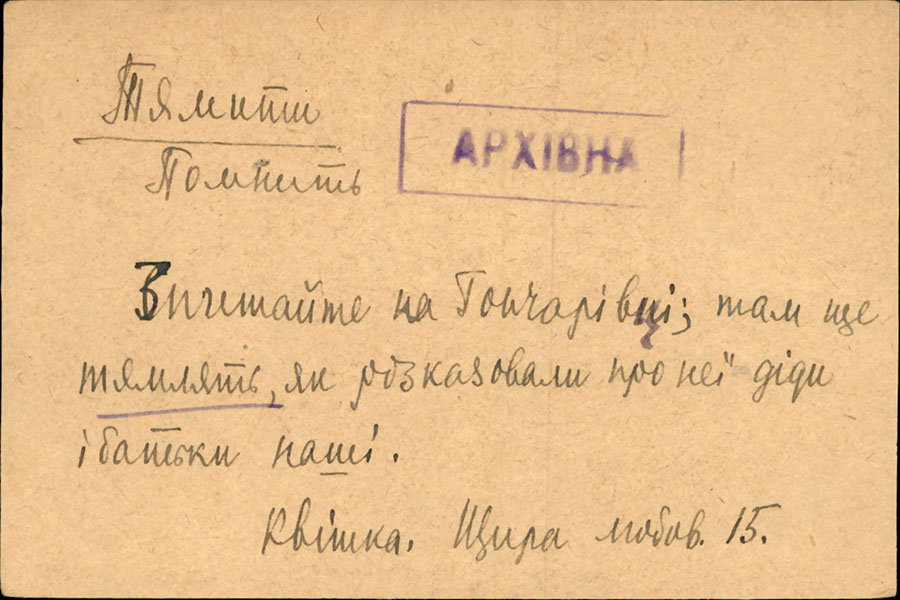 Тямити
АРХІВНА
Помнить
Зпитайте на Гончарівці; там ще
тямлять, як розказовали про неї діди
і батьки наші.
Квітка. Щира любов. 15.